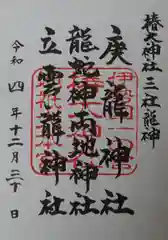 椿大神社 三社龍神
庚龍神社
龍蛇神 地神社
立雲龍神社
令和四年十二月三十日